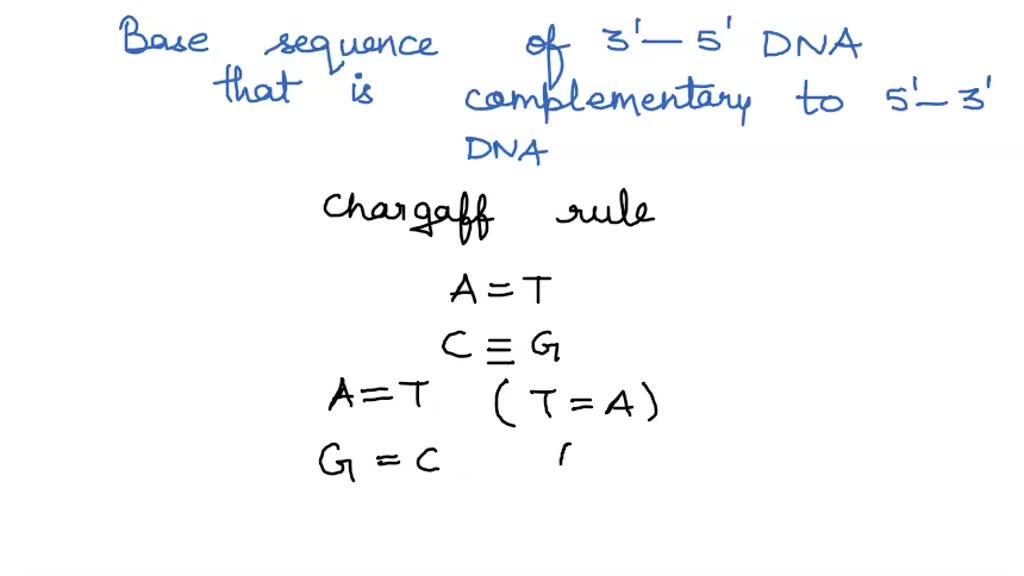 Base sequence of 3'-5' DNA
that is complementary to 5'-3'
DNA
Chargaff rule
A=T
C≡G
A=T (T=A)
G=C (